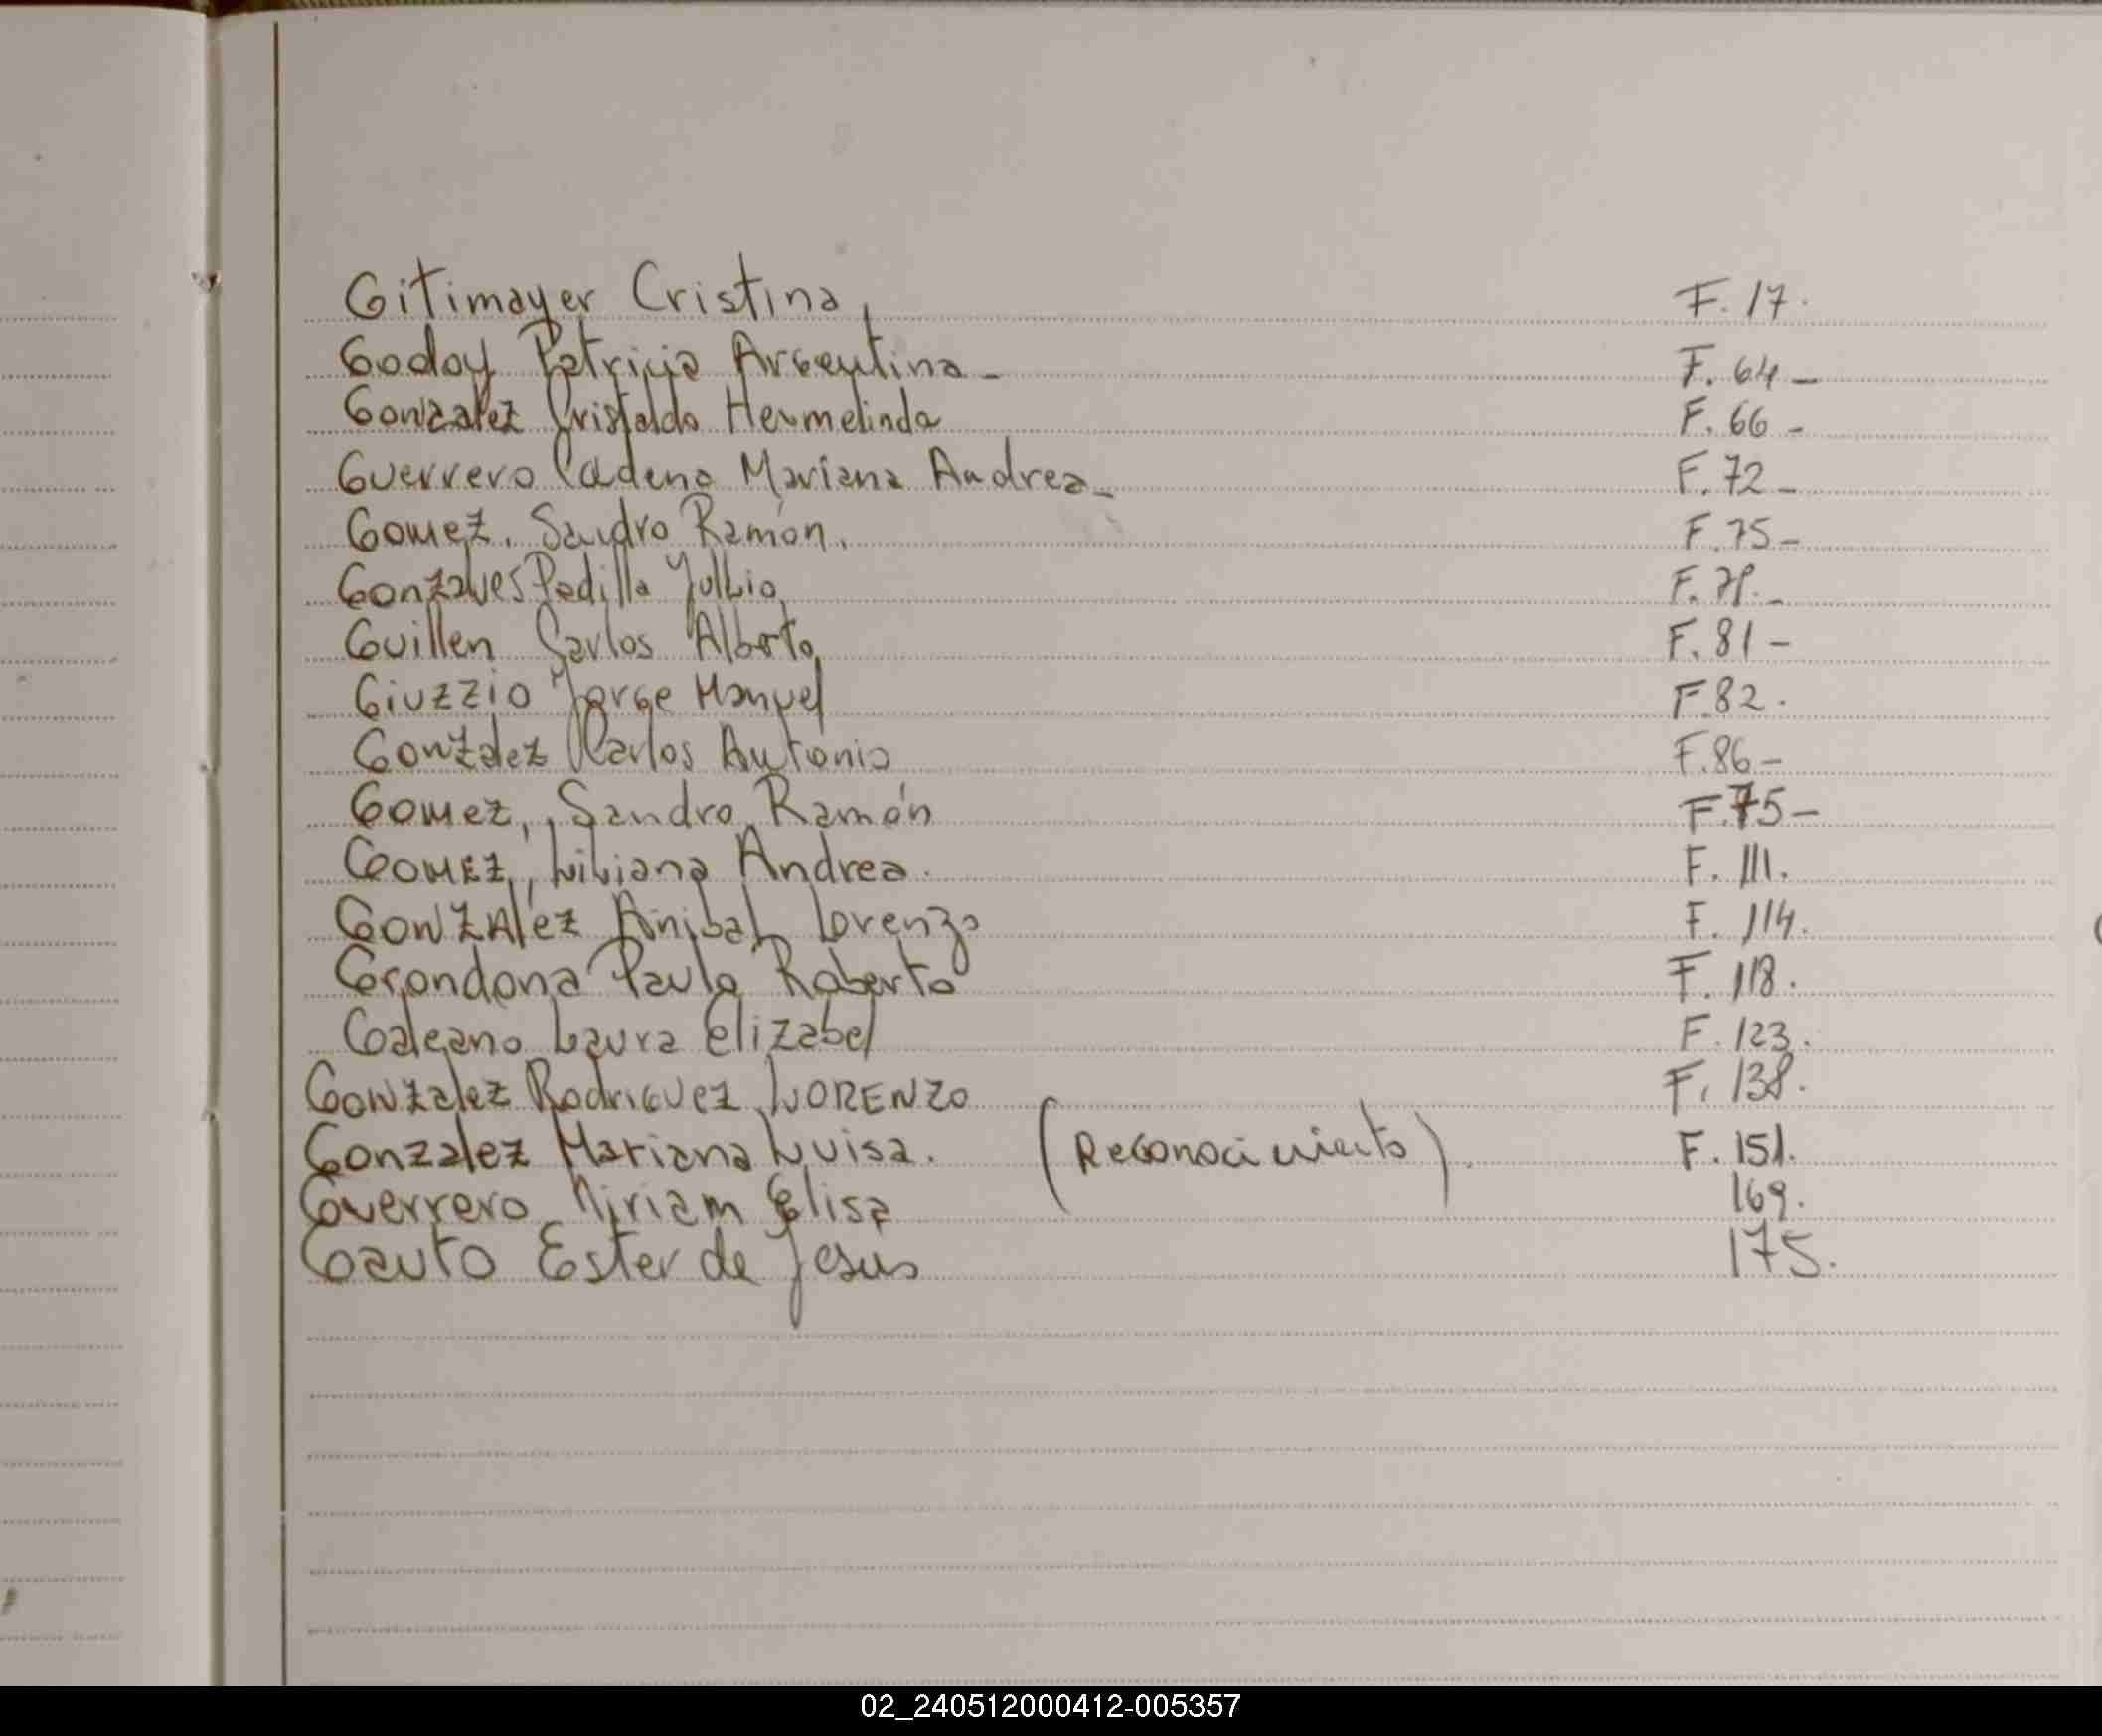 Gitimayer Cristina, F. 17.
Godoy Patricia Argentina - F. 64 -
Gonzalez Cristaldo Hermelinda F. 66 -
Guerrero Cadena Mariana Andrea - F. 72 -
Gomez, Sandro Ramón. F. 75 -
Gonzalves Padilla F.
Guillen Carlos Alberto F. 81 -
Giuzzio Jorge Manuel F. 82.
González Carlos Antonio F. 86 -
Gomez, Sandro Ramón F. 75 -
GOMEZ, Liliana Andrea. F. 111.
GONZALEZ Anibal Lorenzo F. 114.
Grondona Paulo Roberto F. 118.
Galeano Laura Elizabel F. 123.
Gonzalez Rodriguez LORENZO F. 138.
Gonzalez Mariana Luisa. (Reconocimiento). F. 151.
Guerrero Miriam Elisa 169.
Gauto Ester de Jesus 175.
02_240512000412-005357